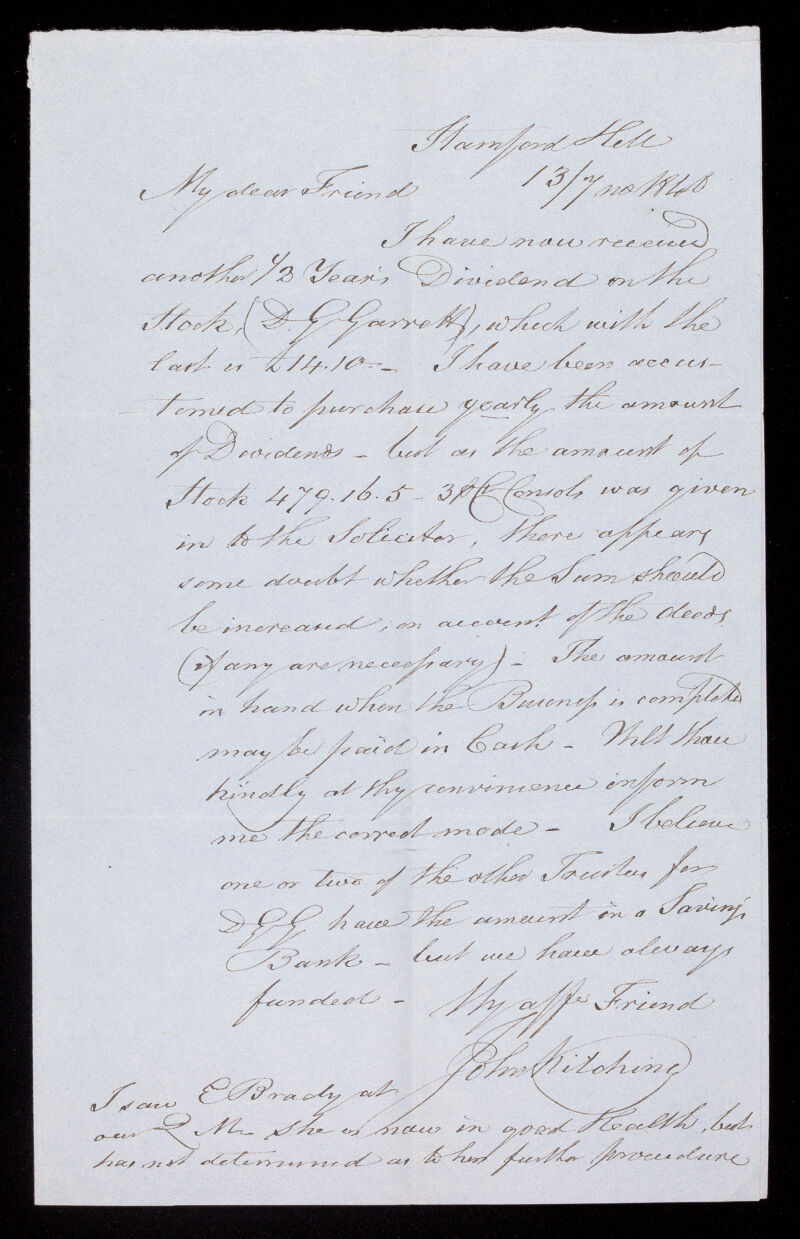 Stamford Hill
My dear Friend 13/7 mo 1846
I have now received
another 1/2 Year's Dividend on the
Stock, (D. G Garrett), which with the
last is £14.10 - I have been accus-
tomed to purchase yearly the amount
of Dividends - but as the amount of
Stock 479.16.5 - 3 P Ct Consols was given
in to the Solicitor, there appears
some doubt whether the Sum should
be increased, on account of the deeds
(if any are necessary) - The amount
in hand when the Business is completed
may be paid in Cash - Wilt thou
kindly at thy convenience inform
me the correct mode - I believe
one or two of the other Trustees for
D G G have the amount in a Saving's
Bank - but we have always
funded - Thy affe Friend
John Kitching
I saw E Brady at
our Q M she is now in good Health, but
has not determined as to her further procedure